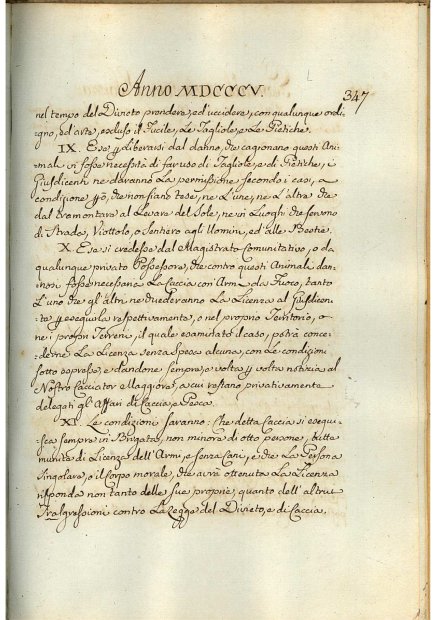 Anno MDCCCV.
347
nel tempo del Divieto prendere, ed uccidere, con qualunque ordi-
gno, ed arte, escluso il Fucile, Le Tagliole, e Le Pietiche.
IX. E se p liberarsi dal danno, che cagionano questi Ani-
mali vi fosse necessità di far uso di Tagliole, e di Pietiche, i
Giusdicenti ne daranno La permissione secondo i casi, a
condizione però, che non siano tese, ne L'une, ne L'altre che
dal tramontare al Levare del Sole, ne in Luoghi che servono
di Strada, Viottolo, o Sentiero agli Uomini, ed alle Bestie.
X. E se si credesse dal Magistrato Comunitativo, o da
qualunque privato Possessore, che contro questi Animali dan-
nosi fosse necessaria La Caccia con Armi da Fuoco, tanto
L'uno che gl'altri ne chiederanno La Licenza al Giusdicen-
te p eseguirla respettivamente, o nel proprio Territorio, o
ne i proprj Terreni, il quale esaminato il caso, potrà conce-
derne La Licenza senza Spesa alcuna, con Le condizioni
sotto espresse, e dandone sempre, e volta p volta notizia al
Nostro Cacciator Maggiore, a cui restano privativamente
delegati gl'Affari di Caccia, e Pesca.
XI. Le condizioni saranno: Che detta Caccia si esegui-
sca sempre in Brigata, non minore di otto Persone, tutte
munite di Licenza dell'Armi, e senza Cani, e che La Persona
singolare, o il Corpo morale, che avrà ottenuta La Licenza
risponda non tanto delle sue proprie, quanto dell'altrui
Trasgressioni contro La Legge del Divieto, e di Caccia.